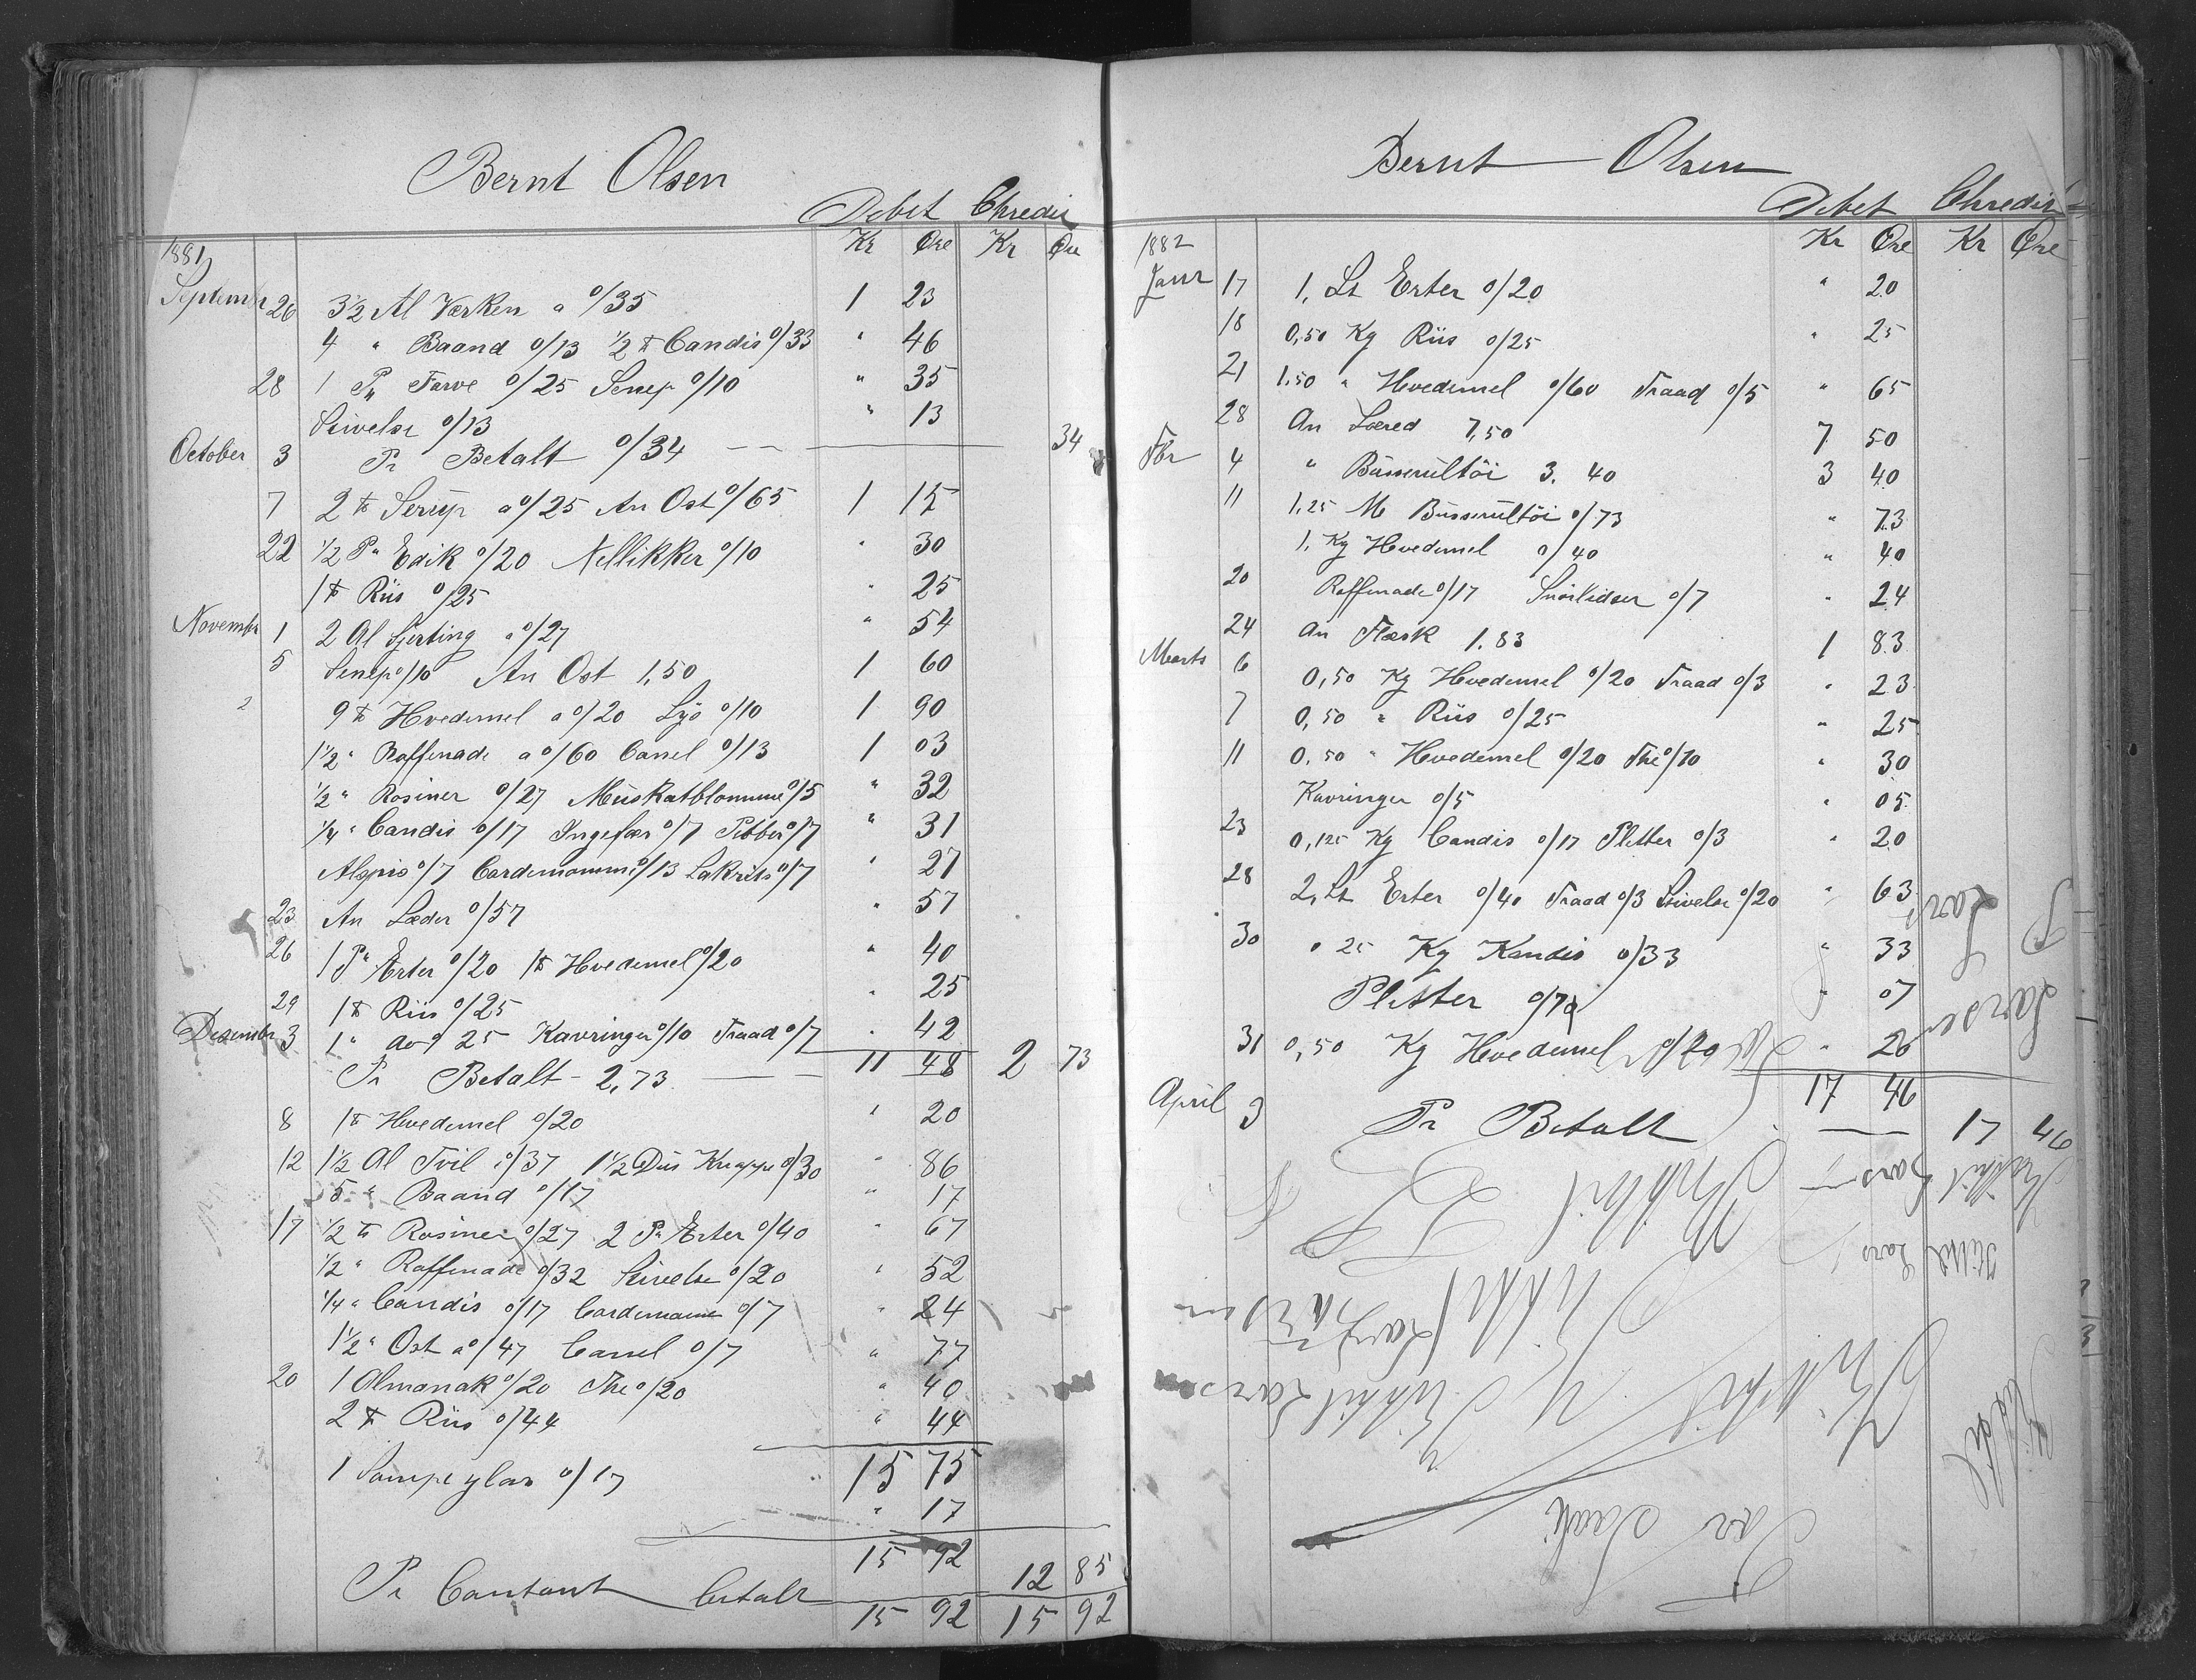 Bernt Olsen
Debet Chredit
1881 Kr Øre Kr Øre
Septembr 26 3½ Al Verken a 0/35 1 23
4 " Baand 0/13 ½ ℔ Candis 0/33 " 46
28 1 P. Farve 0/25 Senep 0/10 " 35
Stivelse 0/13 " 13
October 3 Pr Betalt 0/34 34
7 2 ℔ Serup a 0/25 An Ost 0/65 1 15
22 ½ P. Edik 0/20 Nellikker 0/10 " 30
1 ℔ Riis 0/25 " 25
Novembr 1 2 Al Sjerting a 0/27 " 54
5 Senep 0/10 An Ost 1,50 1 60
9 ℔ Hvedemel a 0/20 Lys 0/10 1 90
1½ " Raffinade a 0/60 Canel 0/13 1 03
½ " Rosiner 0/27 Muskatblomme 0/5 " 32
¼ " Candis 0/17 Ingefær 0/7 Pebber 0/7 " 31
Alspis 0/7 Cardemomme 0/13 Lakrits 0/7 " 27
23 An Læder 0/57 " 57
26 1 P. Erter 0/20 1 ℔ Hvedemel 0/20 " 40
29 1 ℔ Riis 0/25 " 25
Desember 3 1 " do 0/25 Kavringer 0/10 Traad 0/7 " 42
Pr Betalt - 2,73 11 48 2 73
8 1 ℔ Hvedemel 0/20 " 20
12 1½ Al Tvil 0/37 1½ Dus Knappe 0/30 " 86
5 " Baand 0/17 " 17
17 ½ ℔ Rosiner 0/27 2 P. Erter 0/40 " 67
½ " Raffinade 0/32 Stivelse 0/20 " 52
¼ " Candis 0/17 Cardemame 0/7 " 24
1½ " Ost a 0/47 Canel 0/7 " 77
20 1 Almanak 0/20 The 0/20 " 40
2 ℔ Riis 0/44 " 44
15 75
1 Lampeglas 0/17 " 17
15 92
Pr Contant betalt 12 85
15 92 15 92
Bernt Olsen
Debet Chredit
1882 Kr Øre Kr Øre
Janr 17 1, Lt Erter 0/20 " 20
18 0,50 Kg Riis 0/25 " 25
21 1,50 " Hvedemel 0/60 Traad 0/5 " 65
28 An Læred 7,50 7 50
Fbr 4 " Busserultöi 3. 40 3 40
11 1,25 M Busserultöi 0/73 " 73
1, Kg Hvedemel 0/40 " 40
20 Raffinade 0/17 Snörlidser 0/7 " 24
24 An Flæsk 1.83 1 83
Marts 6 0,50 Kg Hvedemel 0/20 Traad 0/3 " 23
7 0,50 " Riis 0/25 " 25
11 0,50 " Hvedemel 0/20 The 0/10 " 30
Kavringer 0/5 " 05
23 0,125 Kg Candis 0/17 Pletter 0/3 " 20
28 2, Lt Erter 0/40 Traad 0/3 Stivelse 0/20 " 63
30 0 25 Kg Kandis 0/33 " 33
Pletter 0/7 " 07
31 0,50 Kg Hvedemel 0/20 " 20
17 46
April 3 Pr Betalt 17 46
Lars
Larsen
Lars
Lars
Larsen